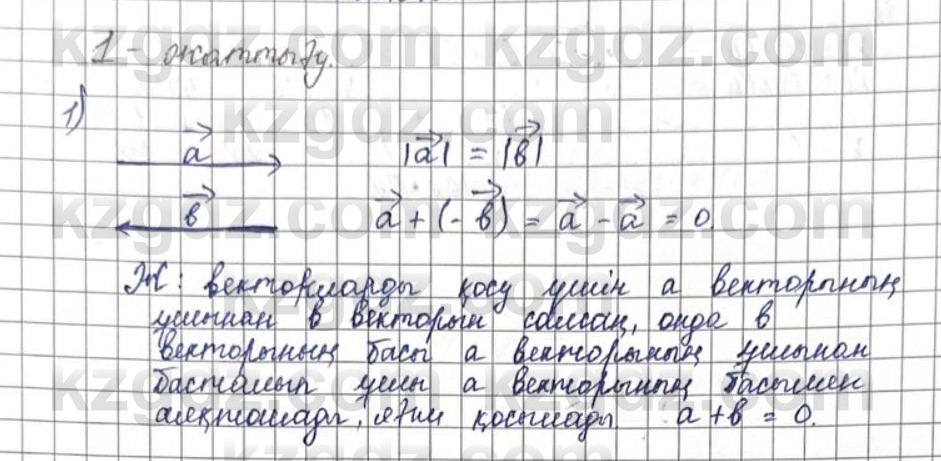 1 - жаттығу.
1)
a⃗ |a⃗| = |в⃗|
в⃗ a⃗ + (- в⃗) = a⃗ - a⃗ = 0.
Ж: векторларды қосу үшін а векторының
ұшынан в векторын салсаң, онда в
векторының басы а векторының ұшынан
басталып ұшы а векторының басымен
аяқталады, яғни қосылады а + в = 0.
kzgdz.com